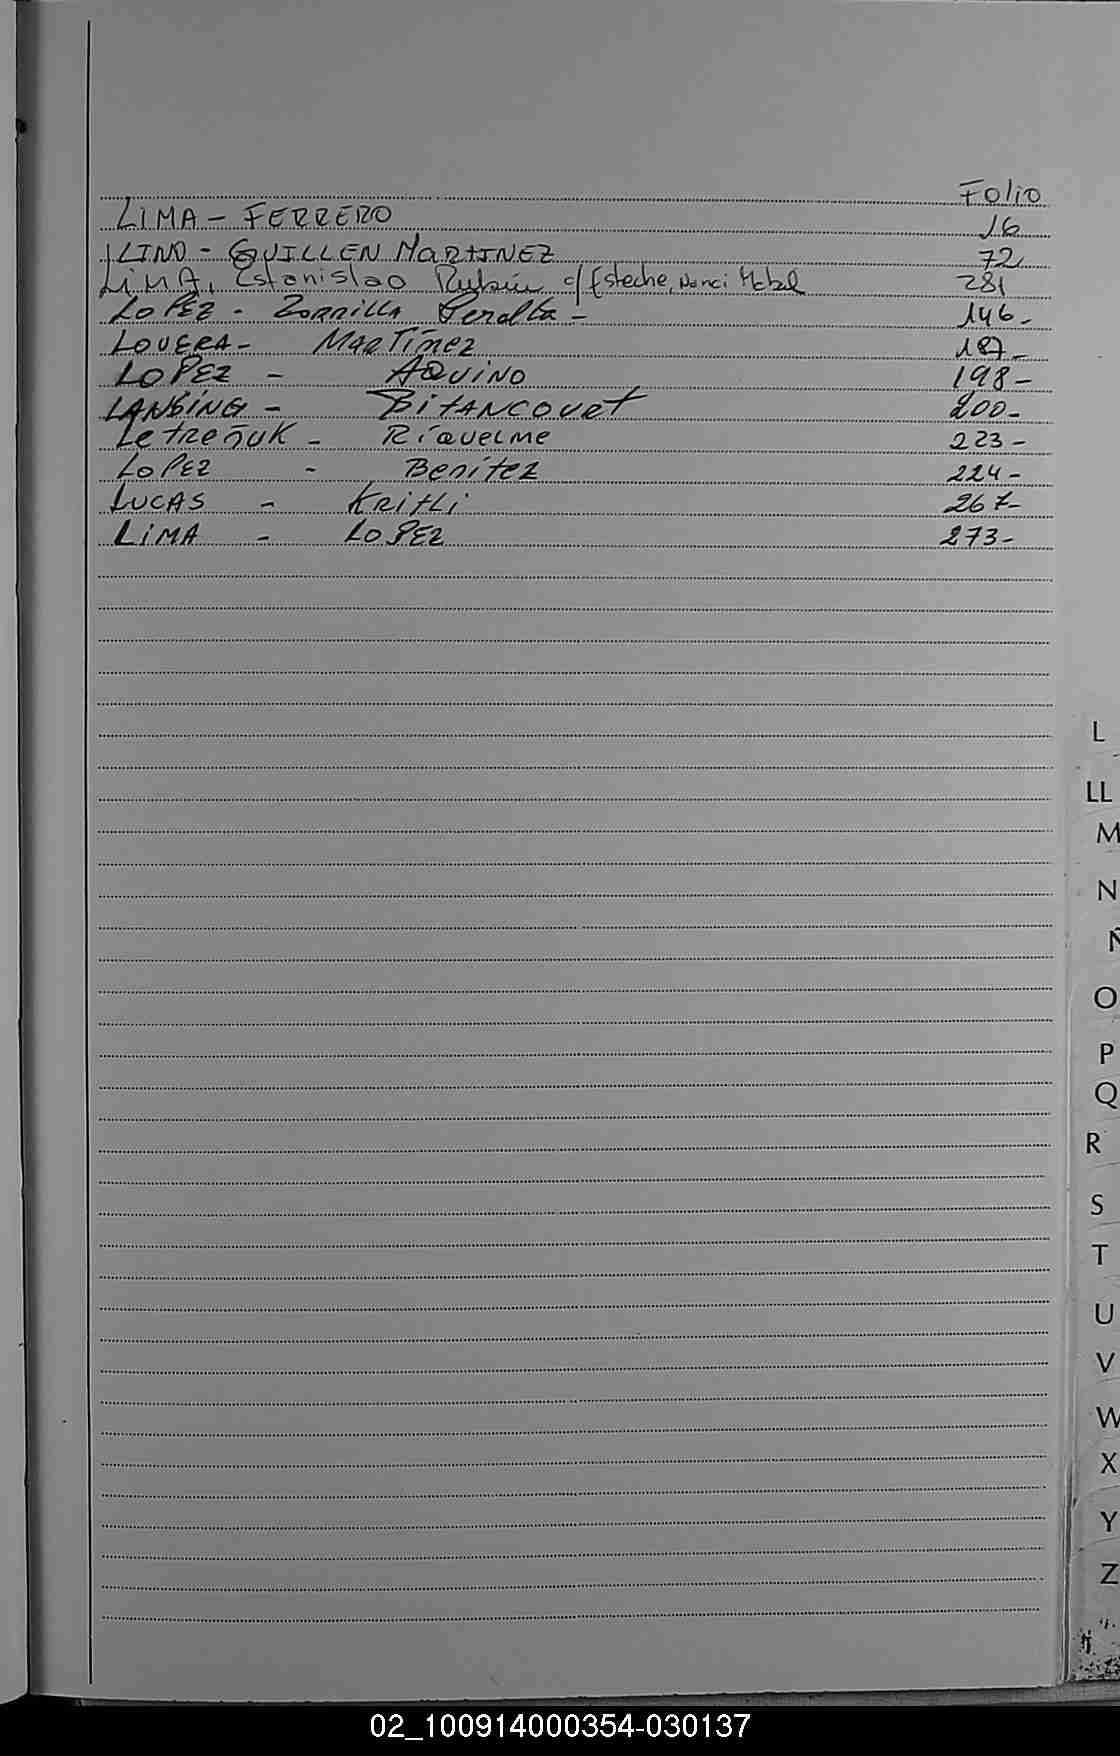 Folio
LIMA - FERRERO 16
LINO - GUILLEN MARTINEZ 72
LIMA, Estanislao Rubén c/ Esteche, Nanci Mabel 281
LOPEZ - ZORRILLA Peralta - 146-
LOVERA - MARTíNEZ 187-
LOPEZ - AQUINO 198-
LANSING - BITANCOURT 200-
Letreñuk - RIQUELME 223-
LOPEZ - Benítez 224-
LUCAS - KRITLI 267-
LIMA - LOPEZ 273-
L
LL
M
N
Ñ
O
P
Q
R
S
T
U
V
W
X
Y
Z
02_100914000354-030137